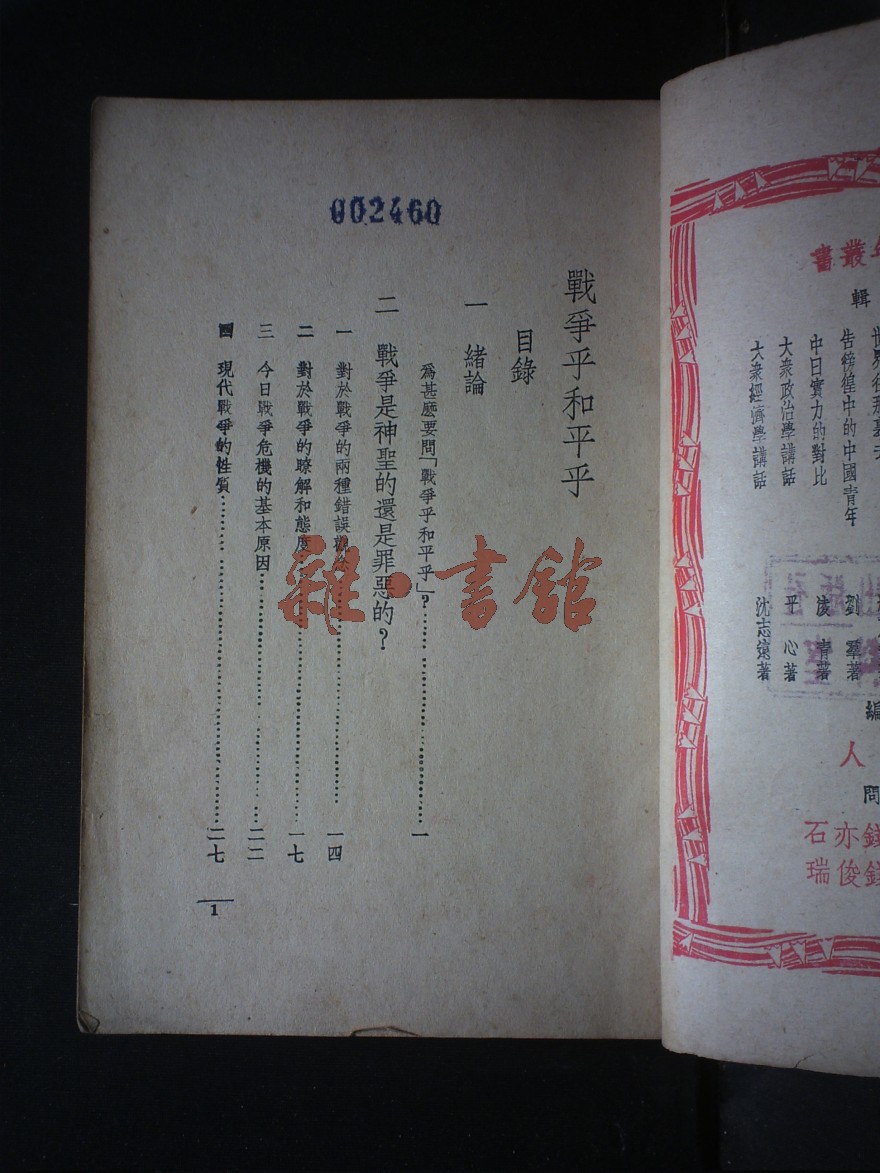 002460
戰爭乎和平乎
目錄
一 緒論
爲甚麽要問「戰爭乎和平乎」?……一
二 戰爭是神聖的還是罪惡的?
一 對於戰爭的兩種錯誤觀念……一四
二 對於戰爭的瞭解和態度……一七
三 今日戰爭危機的基本原因……二二
四 現代戰爭的性質……二七
1
雜·書館
叢書
輯
告徬徨中的中國青年 劉羣著
中日實力的對比 凌青著
大衆政治學講話 平心著
大衆經濟學講話 沈志遠著
編
人
問
錢亦石
錢俊瑞